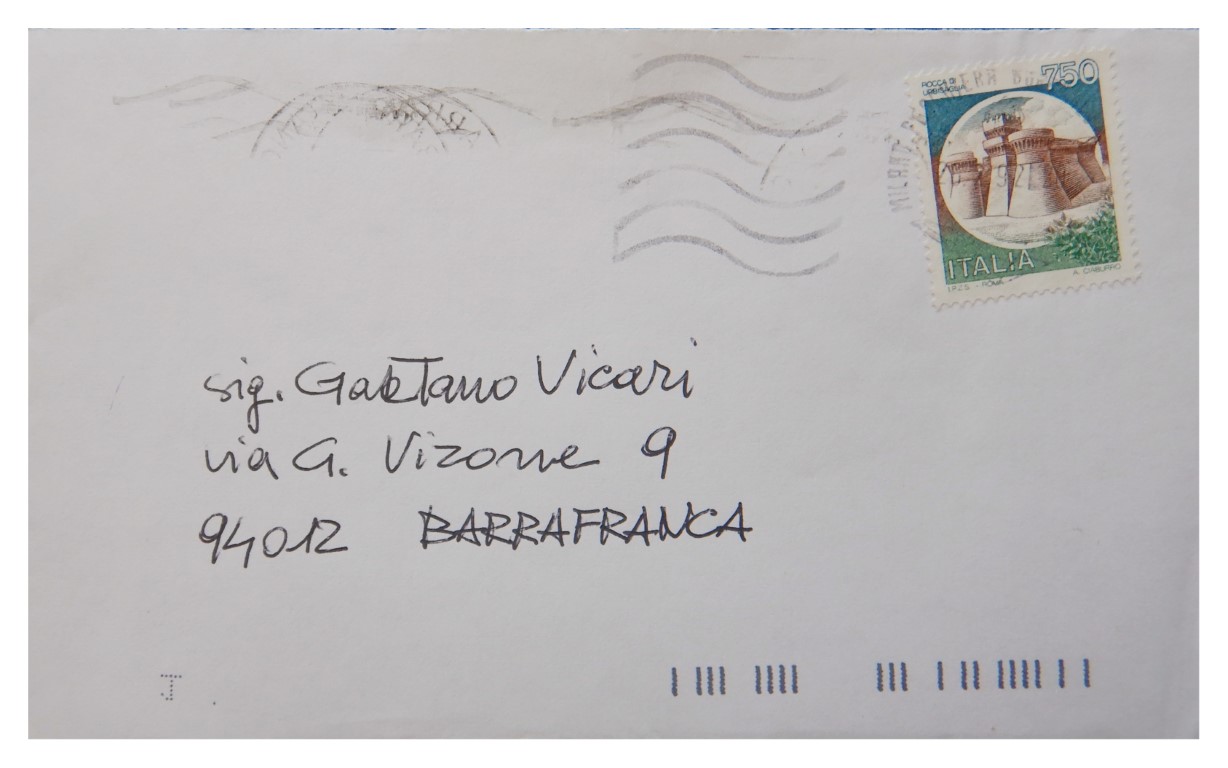 750
ROCCA DI
URBISAGLIA
MILANO
92
ITALIA
I.P.Z.S. - ROMA
A. CIABURRO
sig. Gaetano Vicari
via G. Vizone 9
94012 BARRAFRANCA
J